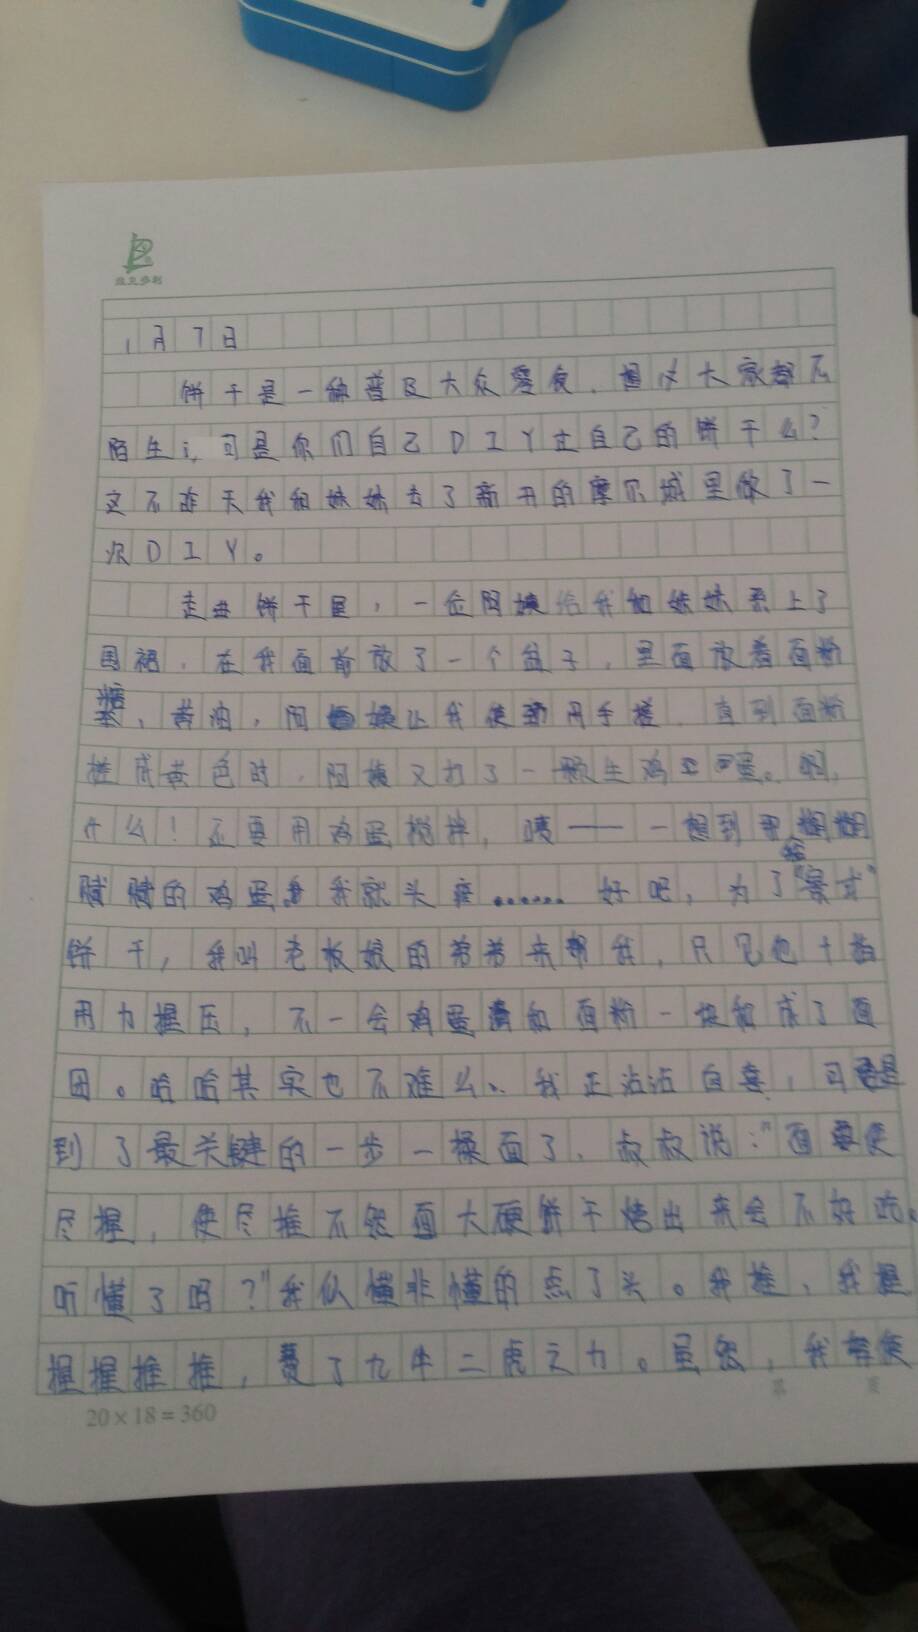 1月7日
饼干是一种普及大众爱食,想必大家都不
陌生,可是你们自己DIY过自己的饼干么?
这不昨天我和妹妹去了新开的摩尔城里做了一
次DIY。
走进饼干屋,一位阿姨给我和妹妹系上了
围裙,在我面前放了一个盆子,里面放着面粉
糖、黄油,阿姨让我使劲用手搓,直到面粉
搓成黄色时,阿姨又打了一颗生鸡蛋。啊,
什么!还要用鸡蛋搅拌,咦——一想到那糊糊
腻腻的鸡蛋我就头疼……好吧,为了
饼干,我叫老板娘的弟弟来帮我,只见他十指
用力握压,不一会鸡蛋和面粉一块和成了面
团。哈哈其实也不难么、我正沾沾自喜,可是
到了最关键的一步—揉面了,叔叔说:"面要使
尽握,使尽推不然面太硬饼干烤出来会不好吃,
听懂了吗?"我似懂非懂的点了头。我推,我握
握握推推,费了九牛二虎之力。虽然,我使
20×18=360